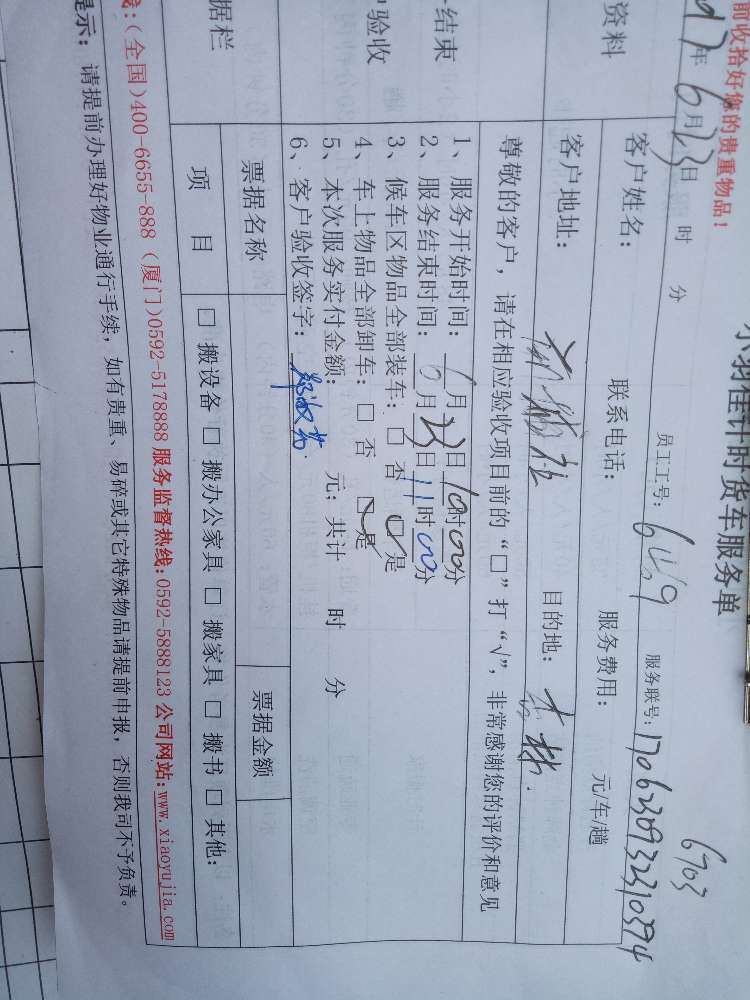 小羽佳计时货车服务单
前收拾好您的贵重物品!
员工工号: 6469 服务联号: 1706230932310394
6703
17年6月23日 时 分
资料
客户姓名: 联系电话: 服务费用: 元/车/趟
客户地址: 目的地: 吉林.
尊敬的客户,请在相应验收项目前的“□”打“√”,非常感谢您的评价和意见
结束
验收
1、服务开始时间: 6月23日10时00分
2、服务结束时间: 6月23日11时00分
3、候车区物品全部装车: □ 否 □ 是
4、车上物品全部卸车: □ 否 □ 是
5、本次服务实付金额: 元; 共计 时 分
6、客户验收签字:
据栏
票据名称 票据金额
项 目 □ 搬设备 □ 搬办公家具 □ 搬家具 □ 搬书 □ 其他:
线:(全国)400-6655-888 (厦门)0592-5178888 服务监督热线:0592-5888123 公司网站:www.xiaoyujia.com
提示: 请提前办理好物业通行手续,如有贵重、易碎或其它特殊物品请提前申报,否则我司不予负责。